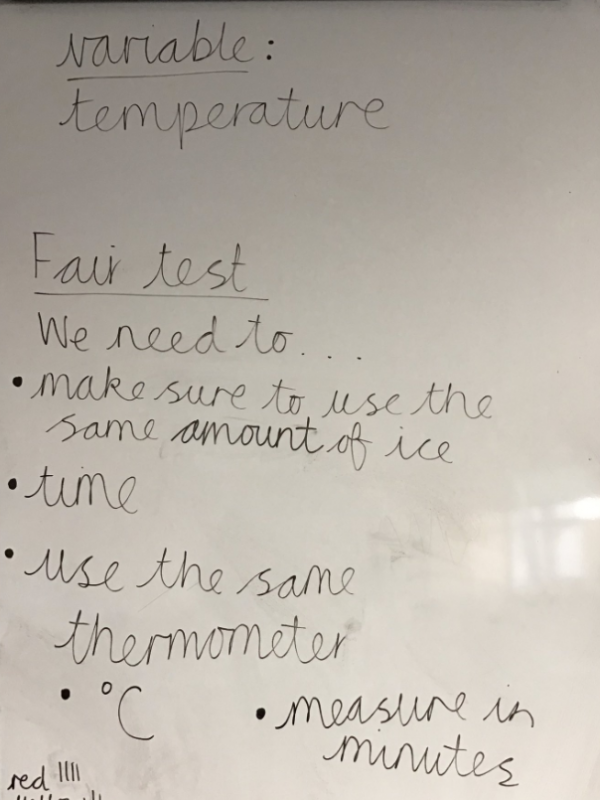 variable:
temperature
Fair test
We need to...
• make sure to use the
same amount of ice
• time
• use the same
thermometer
• °C
• measure in
minutes
red ||||